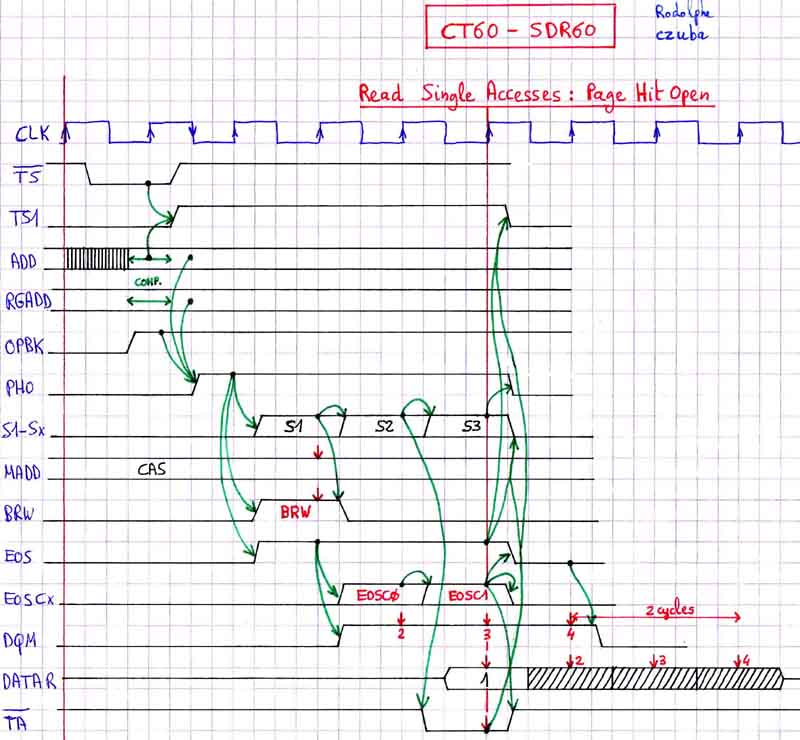 CT60 - SDR60
Rodolphe
czuba
Read Single Accesses : Page Hit Open
CLK
TS
TS1
ADD
COMP.
RGADD
OPBK
PHO
S1-Sx S1 S2 S3
MADD CAS
BRW BRW
EOS
EOSCx EOSC0 EOSC1
2 cycles
DQM 2 3 4
2 3 4
DATAR 1
TA